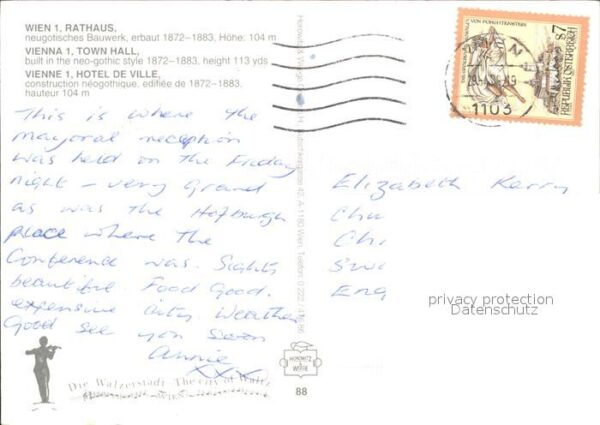 WIEN 1, RATHAUS,
neugotisches Bauwerk, erbaut 1872–1883, Höhe: 104 m
VIENNA 1, TOWN HALL,
built in the neo-gothic style 1872–1883, height 113 yds
VIENNE 1, HOTEL DE VILLE,
construction néogothique, edifiée de 1872–1883,
hauteur 104 m
This is where the
mayoral reception
was held on the Friday
night – very Grand
as was the Hofburgh
place where the
Conference was. Sights
beautiful. Food Good.
expensive city. Weather
Good see you soon
Annie
XXX
Elizabeth Kerry
Chu
Chi
Swi
Eng
privacy protection
Datenschutz
Die Walzerstadt The city of Waltz
HOROWITZ
WEEGE
88
S7
REPUBLIK ÖSTERREICH
1103